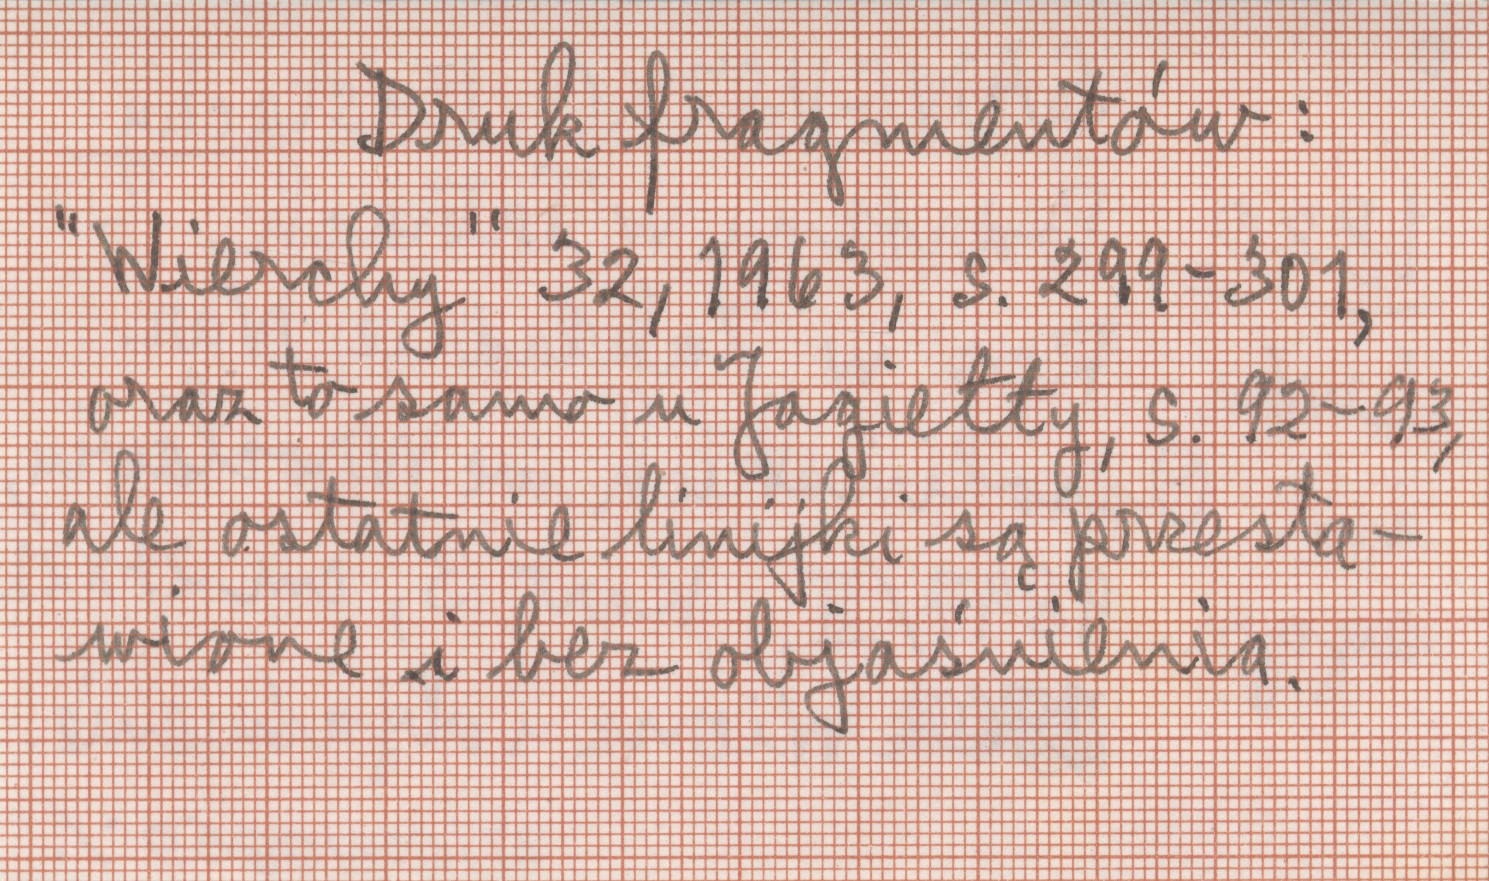 Druk fragmentów:
"Wierchy" 32, 1963, s. 299-301,
oraz to samo u Jagiełły, s. 92-93,
ale ostatnie linijki są przesta-
wione i bez objaśnienia.